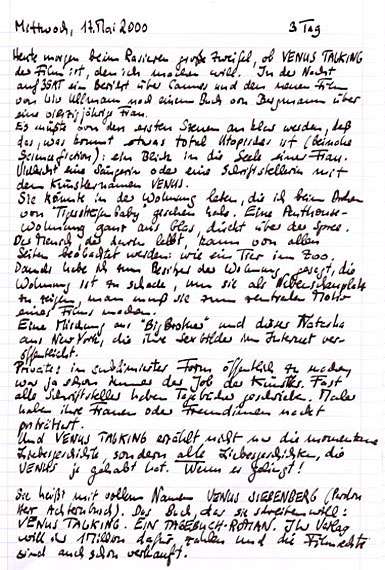 Mittwoch, 17. Mai 2000 3. Tag
Heute morgen beim Rasieren große Zweifel, ob VENUS TALKING
der Film ist, den ich machen will. In der Nacht
auf 3SAT ein Bericht über Cannes und den neuen Film
von Liv Ullmann nach einem Buch von Bergmann über
eine vierzigjährige Frau.
Es müßte von den ersten Szenen an klar werden, daß
das, was kommt etwas total Utopisches ist (beinahe
Science fiction): ein Blick in die Seele einer Frau.
Vielleicht eine Sängerin oder eine Schriftstellerin mit
dem Künsternamen VENUS.
Sie könnte in der Wohnung leben, die ich beim Drehen
von Tigerstreifenbaby gesehen habe. Eine Penthouse-
Wohnung ganz aus Glas, direkt über der Spree.
Der Mensch, der darin lebt, kann von allen
Seiten beobachtet werden: wie ein Tier im Zoo.
Damals habe ich zum Besitzer der Wohnung gesagt, die
Wohnung ist zu schade, um sie als Nebenschauplatz
zu zeigen, man muß sie zum zentralen Motiv
eines Films machen.
Eine Mischung aus "Big Brother" und dieser Natasha
aus New York, die ihre Sexbilder im Internet ver-
öffentlicht.
Privates in sublimierter Form öffentlich zu machen
war ja schon immer der Job des Künstlers. Fast
alle Schriftsteller haben Tagebücher geschrieben. Maler
haben ihre Frauen oder Freundinnen nackt
porträtiert.
Und VENUS TALKING erzählt nicht nur die momentane
Liebesgeschichte, sondern alle Liebesgeschichten, die
VENUS je gehabt hat. Wenn es gelingt!
Sie heißt mit vollem Namen VENUS SIEBENBERG (Pardon
Herr Achternbusch). Das Buch, das sie schreiben will:
VENUS TALKING. EIN TAGEBUCH-ROMAN. Ihr Verlag
will ihr 1 Million dafür zahlen und die Filmrechte
sind auch schon verkauft.